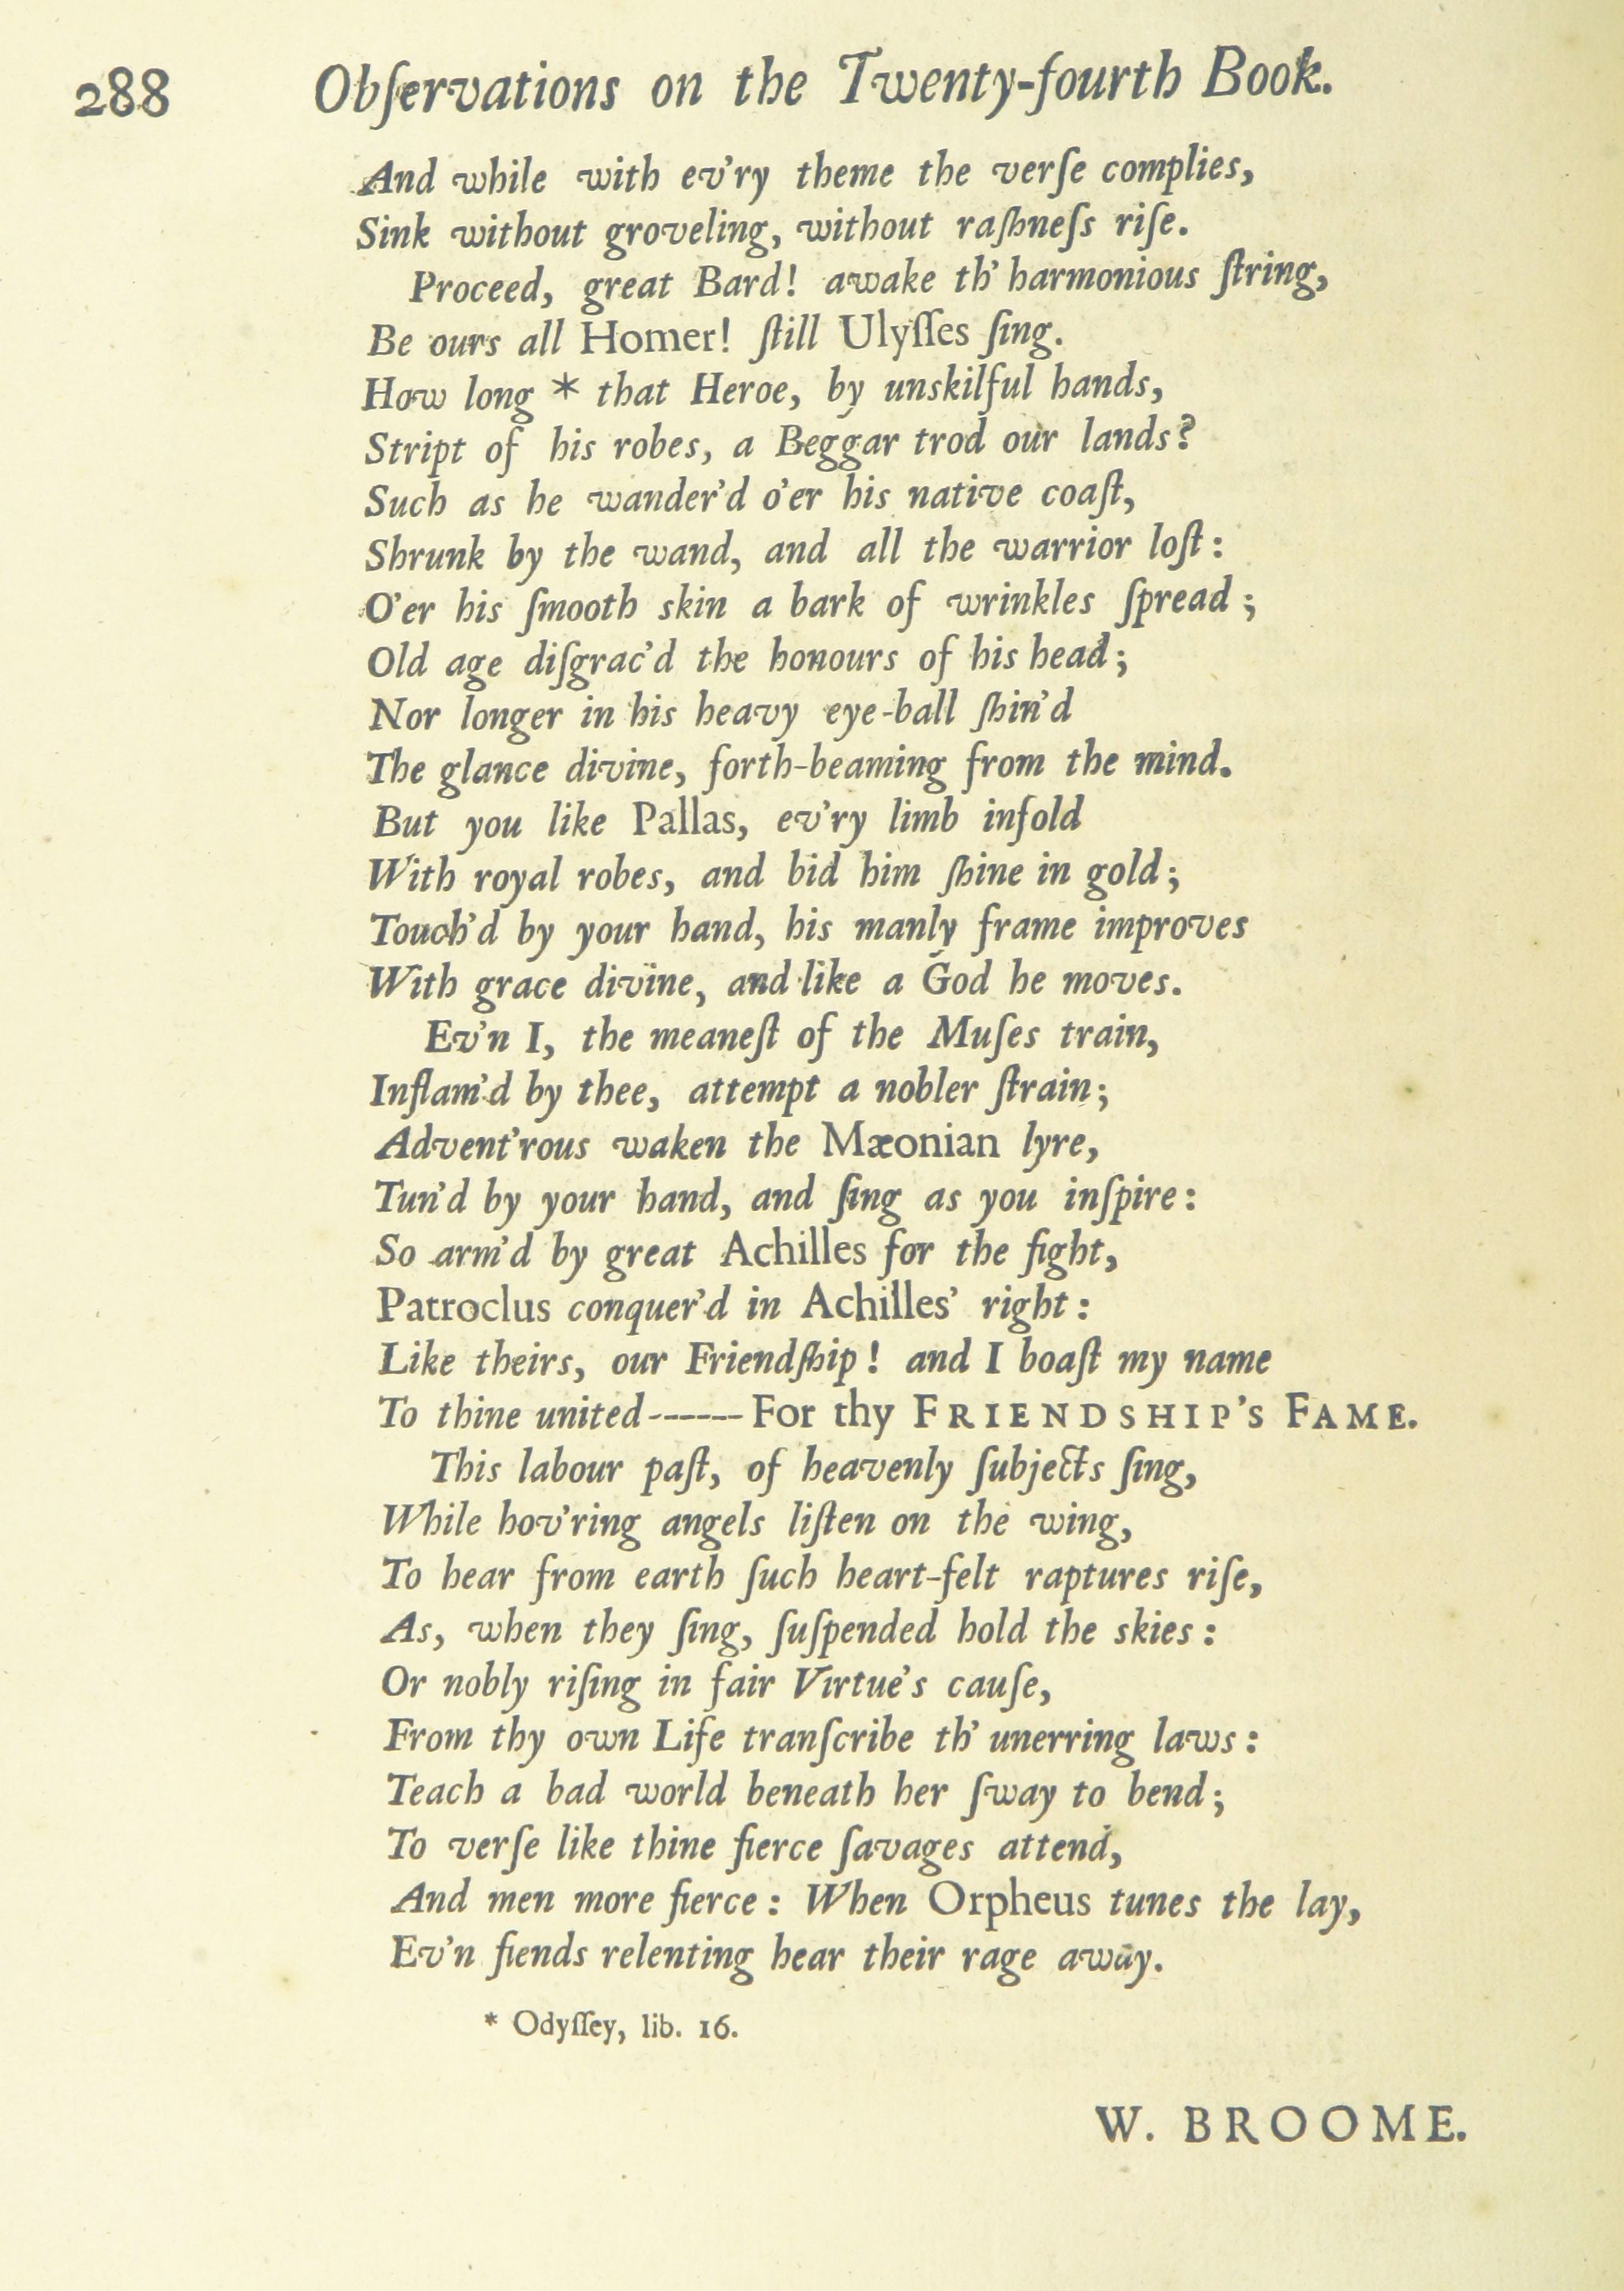 288 Obſervations on the Twenty-fourth Book.
And while with ev'ry theme the verſe complies,
Sink without groveling, without raſhneſs riſe.
Proceed, great Bard! awake th' harmonious ſtring,
Be ours all Homer! ſtill Ulyſſes ſing.
How long * that Heroe, by unskilful hands,
Stript of his robes, a Beggar trod our lands?
Such as he wander'd o'er his native coaſt,
Shrunk by the wand, and all the warrior loſt:
O'er his ſmooth skin a bark of wrinkles ſpread;
Old age diſgrac'd the honours of his head;
Nor longer in his heavy eye-ball ſhin'd
The glance divine, forth-beaming from the mind.
But you like Pallas, ev'ry limb infold
With royal robes, and bid him ſhine in gold;
Touch'd by your hand, his manly frame improves
With grace divine, and like a God he moves.
Ev'n I, the meaneſt of the Muſes train,
Inflam'd by thee, attempt a nobler ſtrain;
Advent'rous waken the Mæonian lyre,
Tun'd by your hand, and ſing as you inſpire:
So arm'd by great Achilles for the fight,
Patroclus conquer'd in Achilles' right:
Like theirs, our Friendſhip! and I boaſt my name
To thine united------For thy FRIENDSHIP's FAME.
This labour paſt, of heavenly ſubjects ſing,
While hov'ring angels liſten on the wing,
To hear from earth ſuch heart-felt raptures riſe,
As, when they ſing, ſuſpended hold the skies:
Or nobly riſing in fair Virtue's cauſe,
From thy own Life tranſcribe th' unerring laws:
Teach a bad world beneath her ſway to bend;
To verſe like thine fierce ſavages attend,
And men more fierce: When Orpheus tunes the lay,
Ev'n fiends relenting hear their rage away.
* Odyſſey, lib. 16.
W. BROOME.